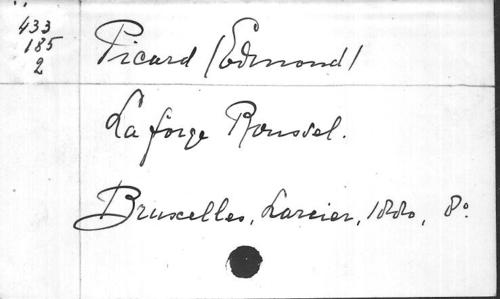 433
185
2
Picard (Edmond)
La forge Roussel.
Bruxelles, Larcier, 1880, 8º